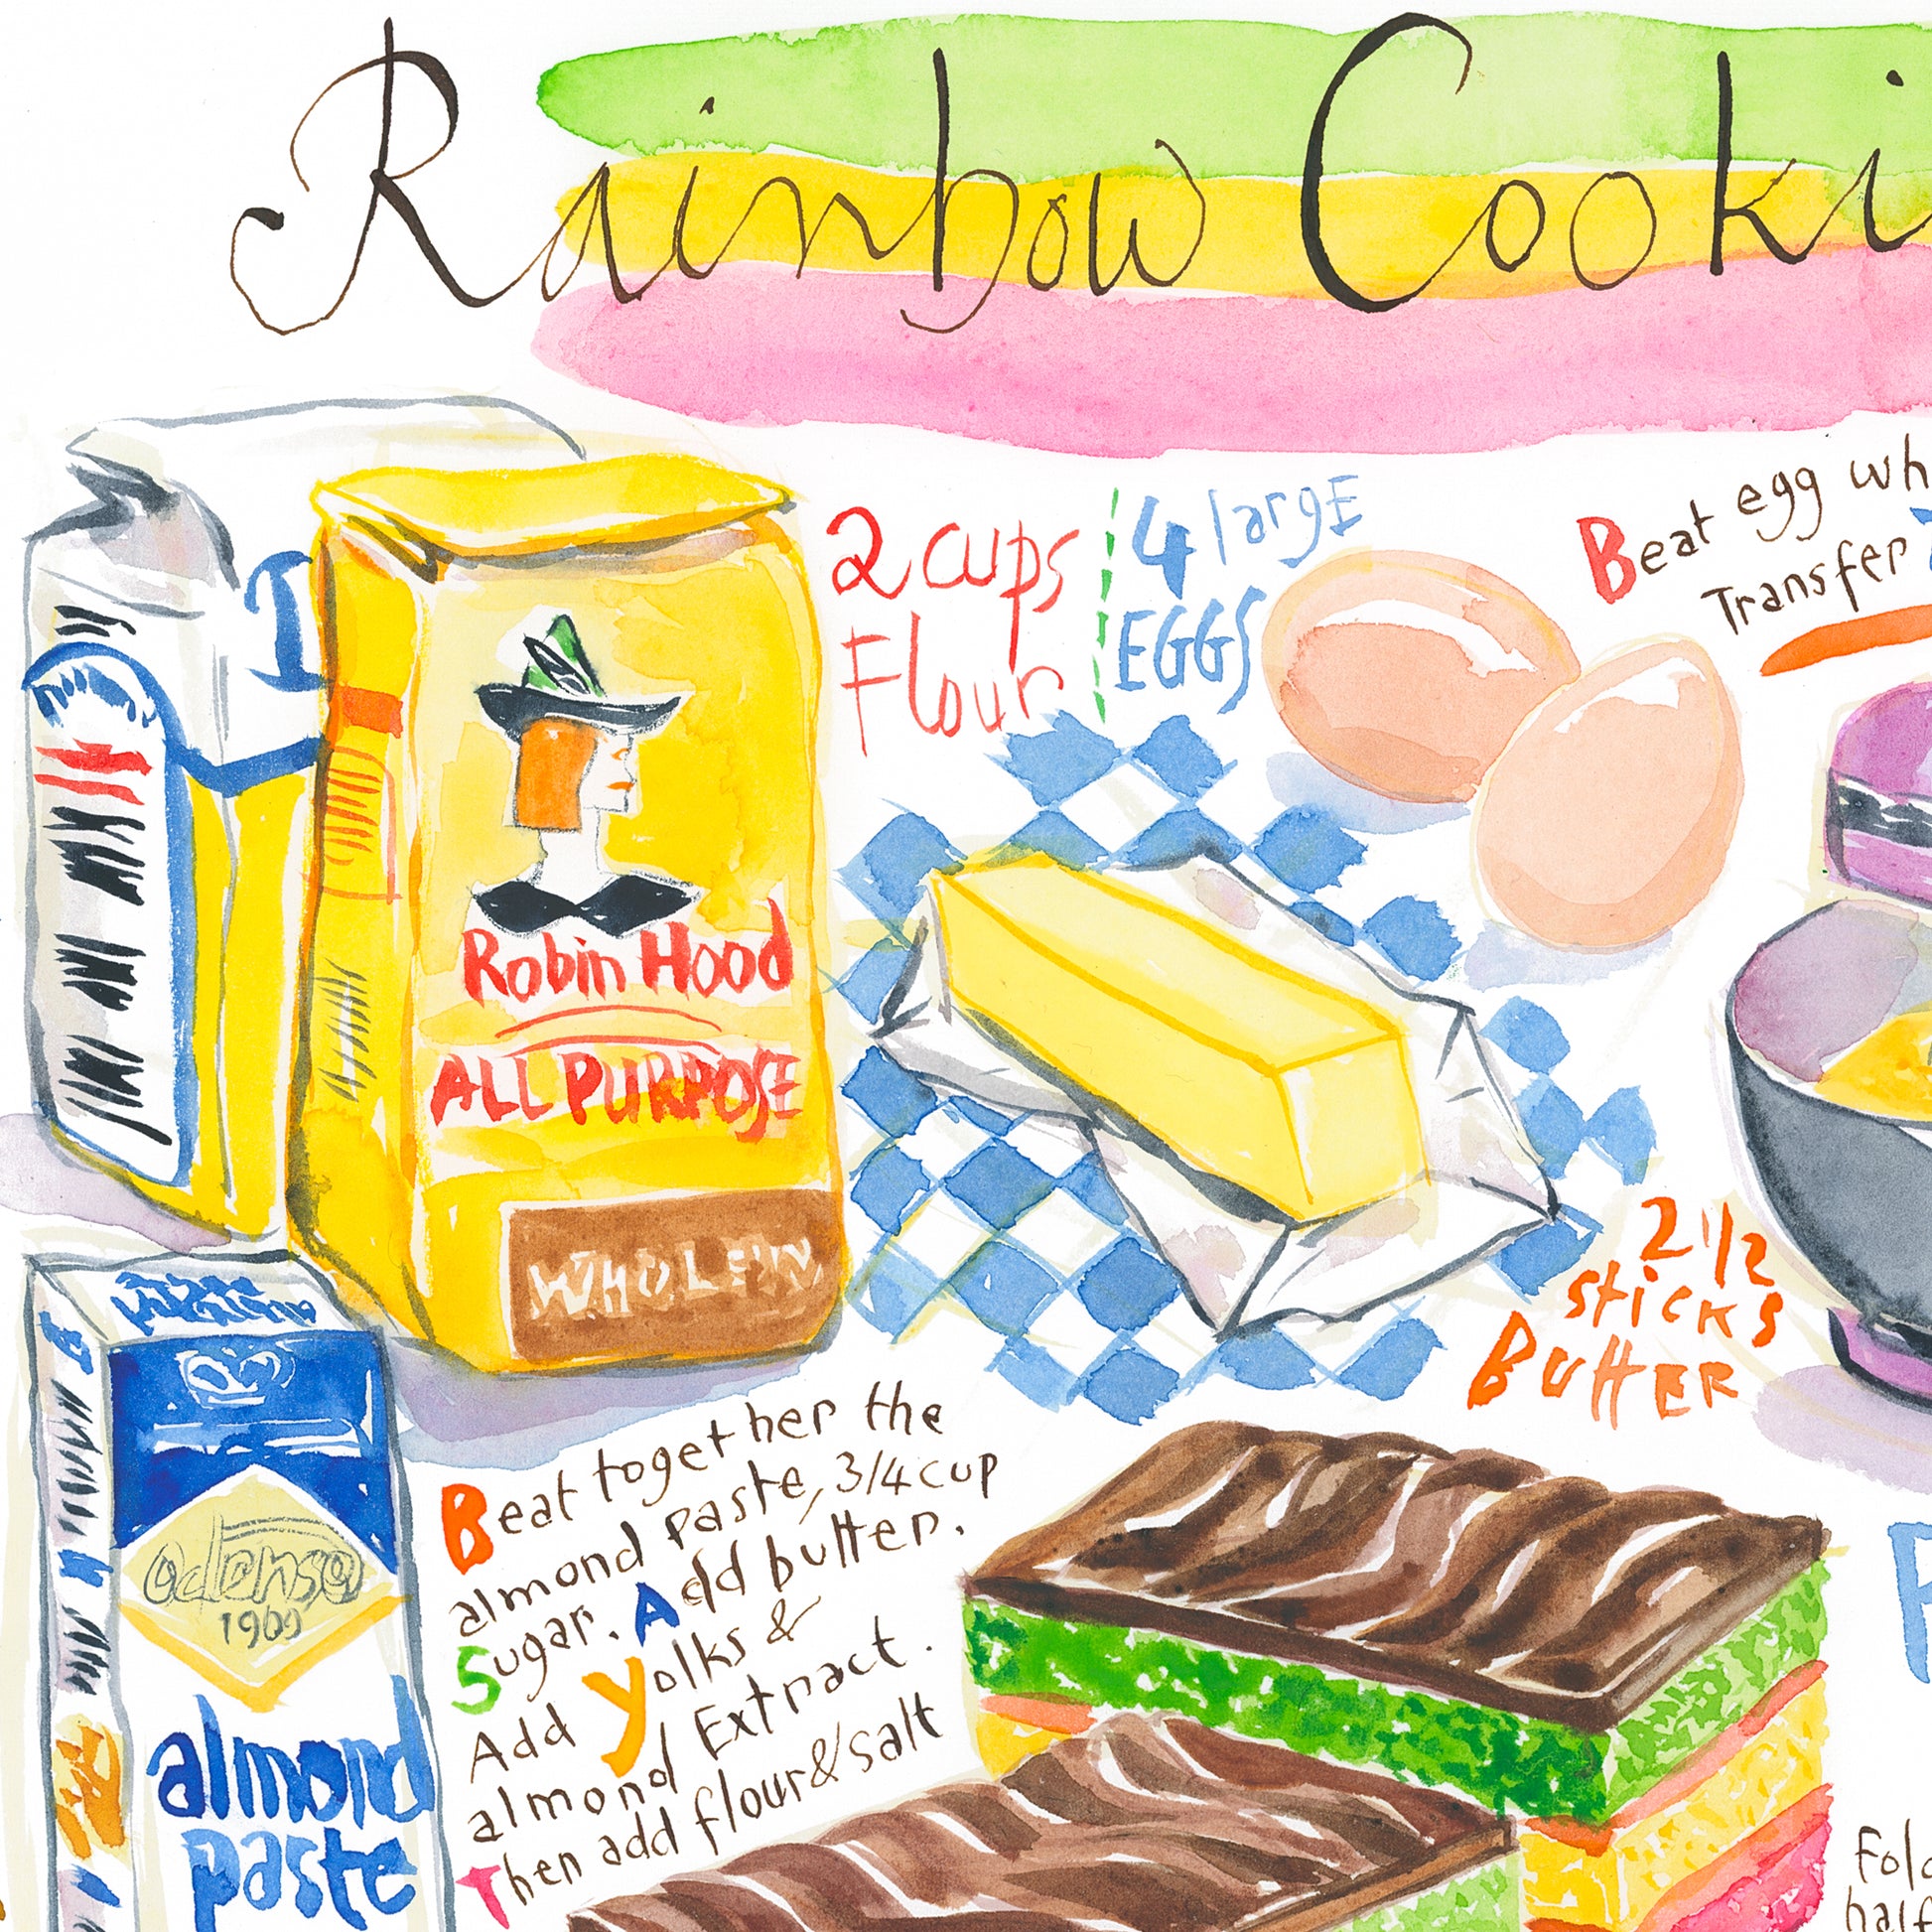 Rainbow Cooki
2 cups
Flour
4 largE
EGGS
Beat egg wh
Transfer
Robin Hood
ALL PURPOSE
2 1/2
sticks
ButtER
Beat together the
almond paste, 3/4 cup
Sugar. Add butter.
Add Yolks &
almond Extract.
Then add flour & salt
odense
1909
almond
paste
Fold
half